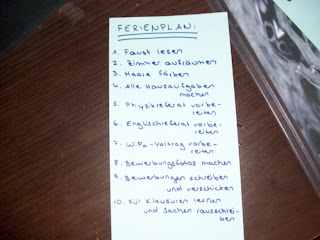 FERIENPLAN:
1. Faust lesen
2. Zimmer aufräumen
3. Haare färben
4. Alle Hausaufgaben
machen
5. Physikreferat vorbe-
reiten
6. Englischreferat vorbe-
reiten
7. WiPo-Vortrag vorbe-
reiten
8. Bewerbungsfotos machen
9. Bewerbungen schreiben
und verschicken
10. Für Klausuren lernen
und Sachen rausschrei-
ben